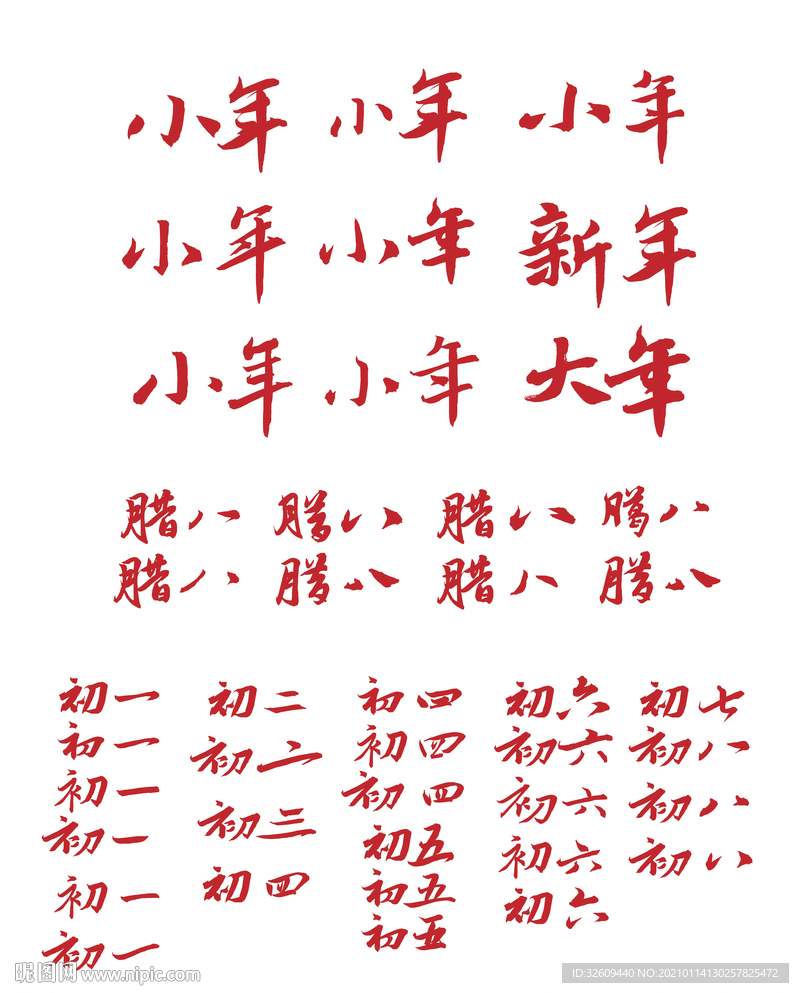 小年 小年 小年
小年 小年 新年
小年 小年 大年
腊八 腊八 腊八 腊八
腊八 腊八 腊八 腊八
初一 初二 初四 初六 初七
初一 初二 初四 初六 初八
初一 初三 初四 初六 初八
初一 初四 初五 初六 初八
初一 初五 初六
初一 初五
昵图网 www.nipic.com
ID:32609440 NO:20210114130257825472